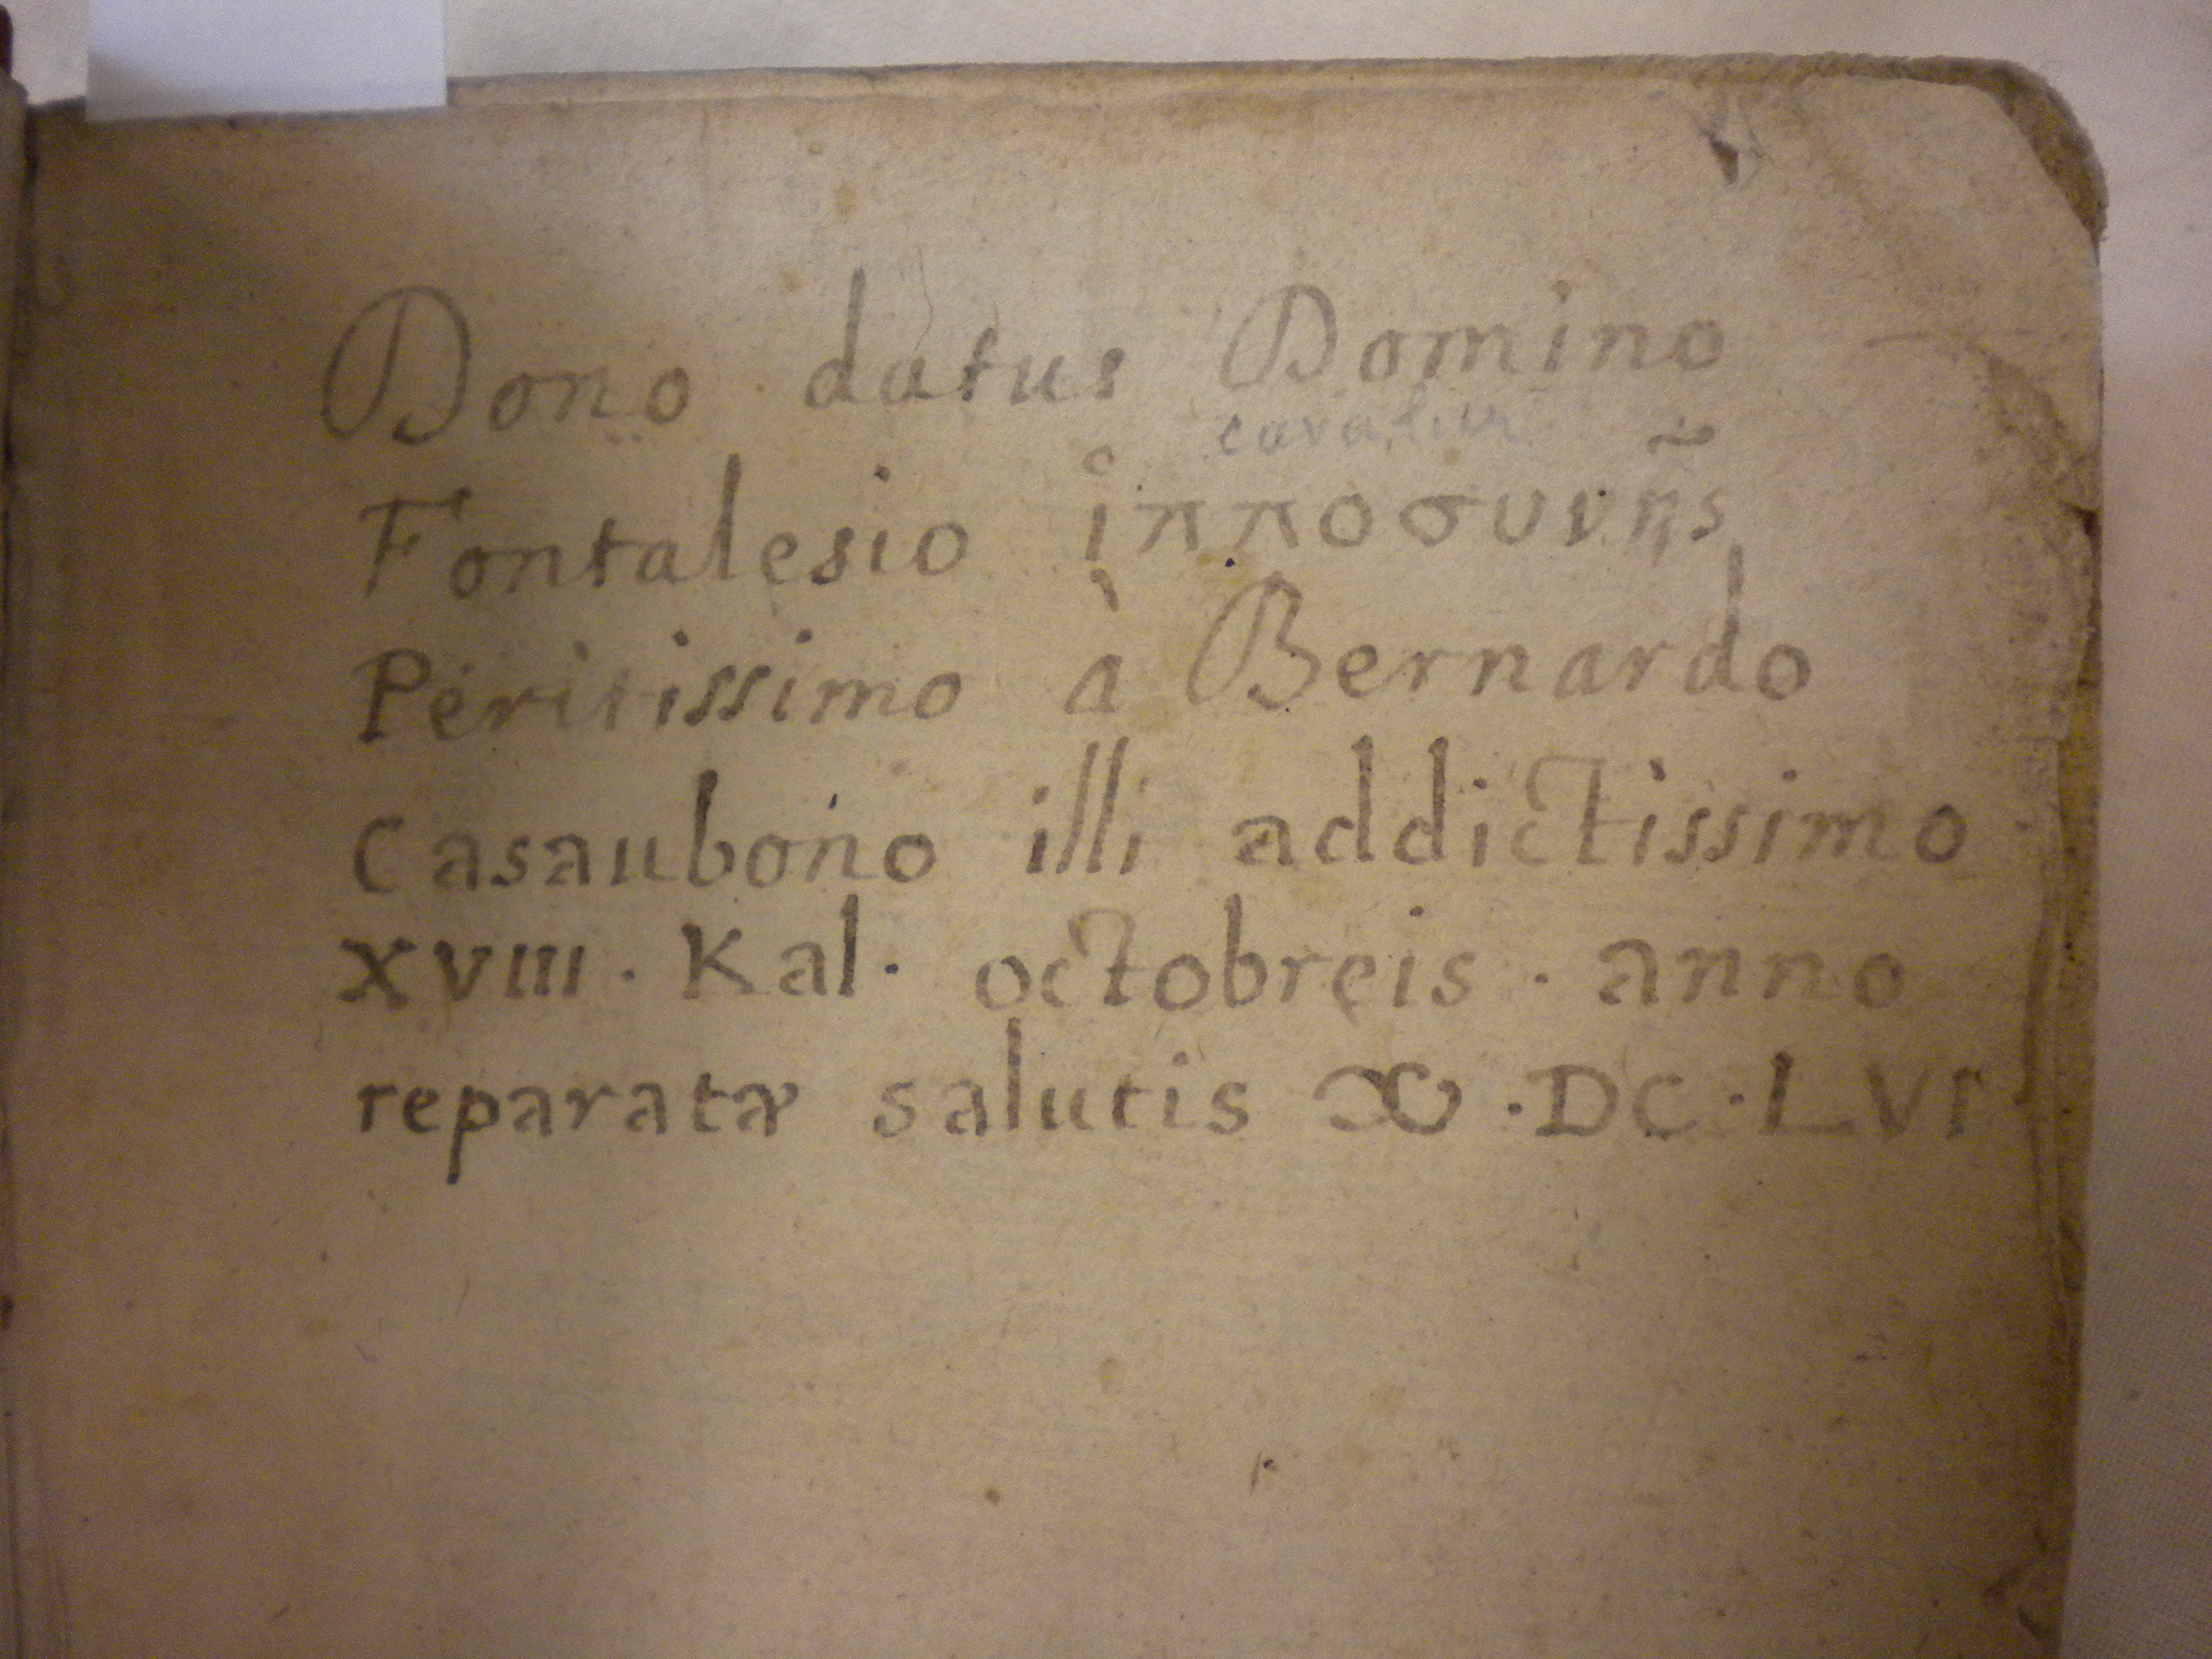 Dono datus Domino
Fontalesio ἱπποσυνῆς
Peritissimo à Bernardo
Casaubono illi addictissimo
XVIII · Kal · octobreis · anno
reparatæ salutis ↀ · DC · LVI